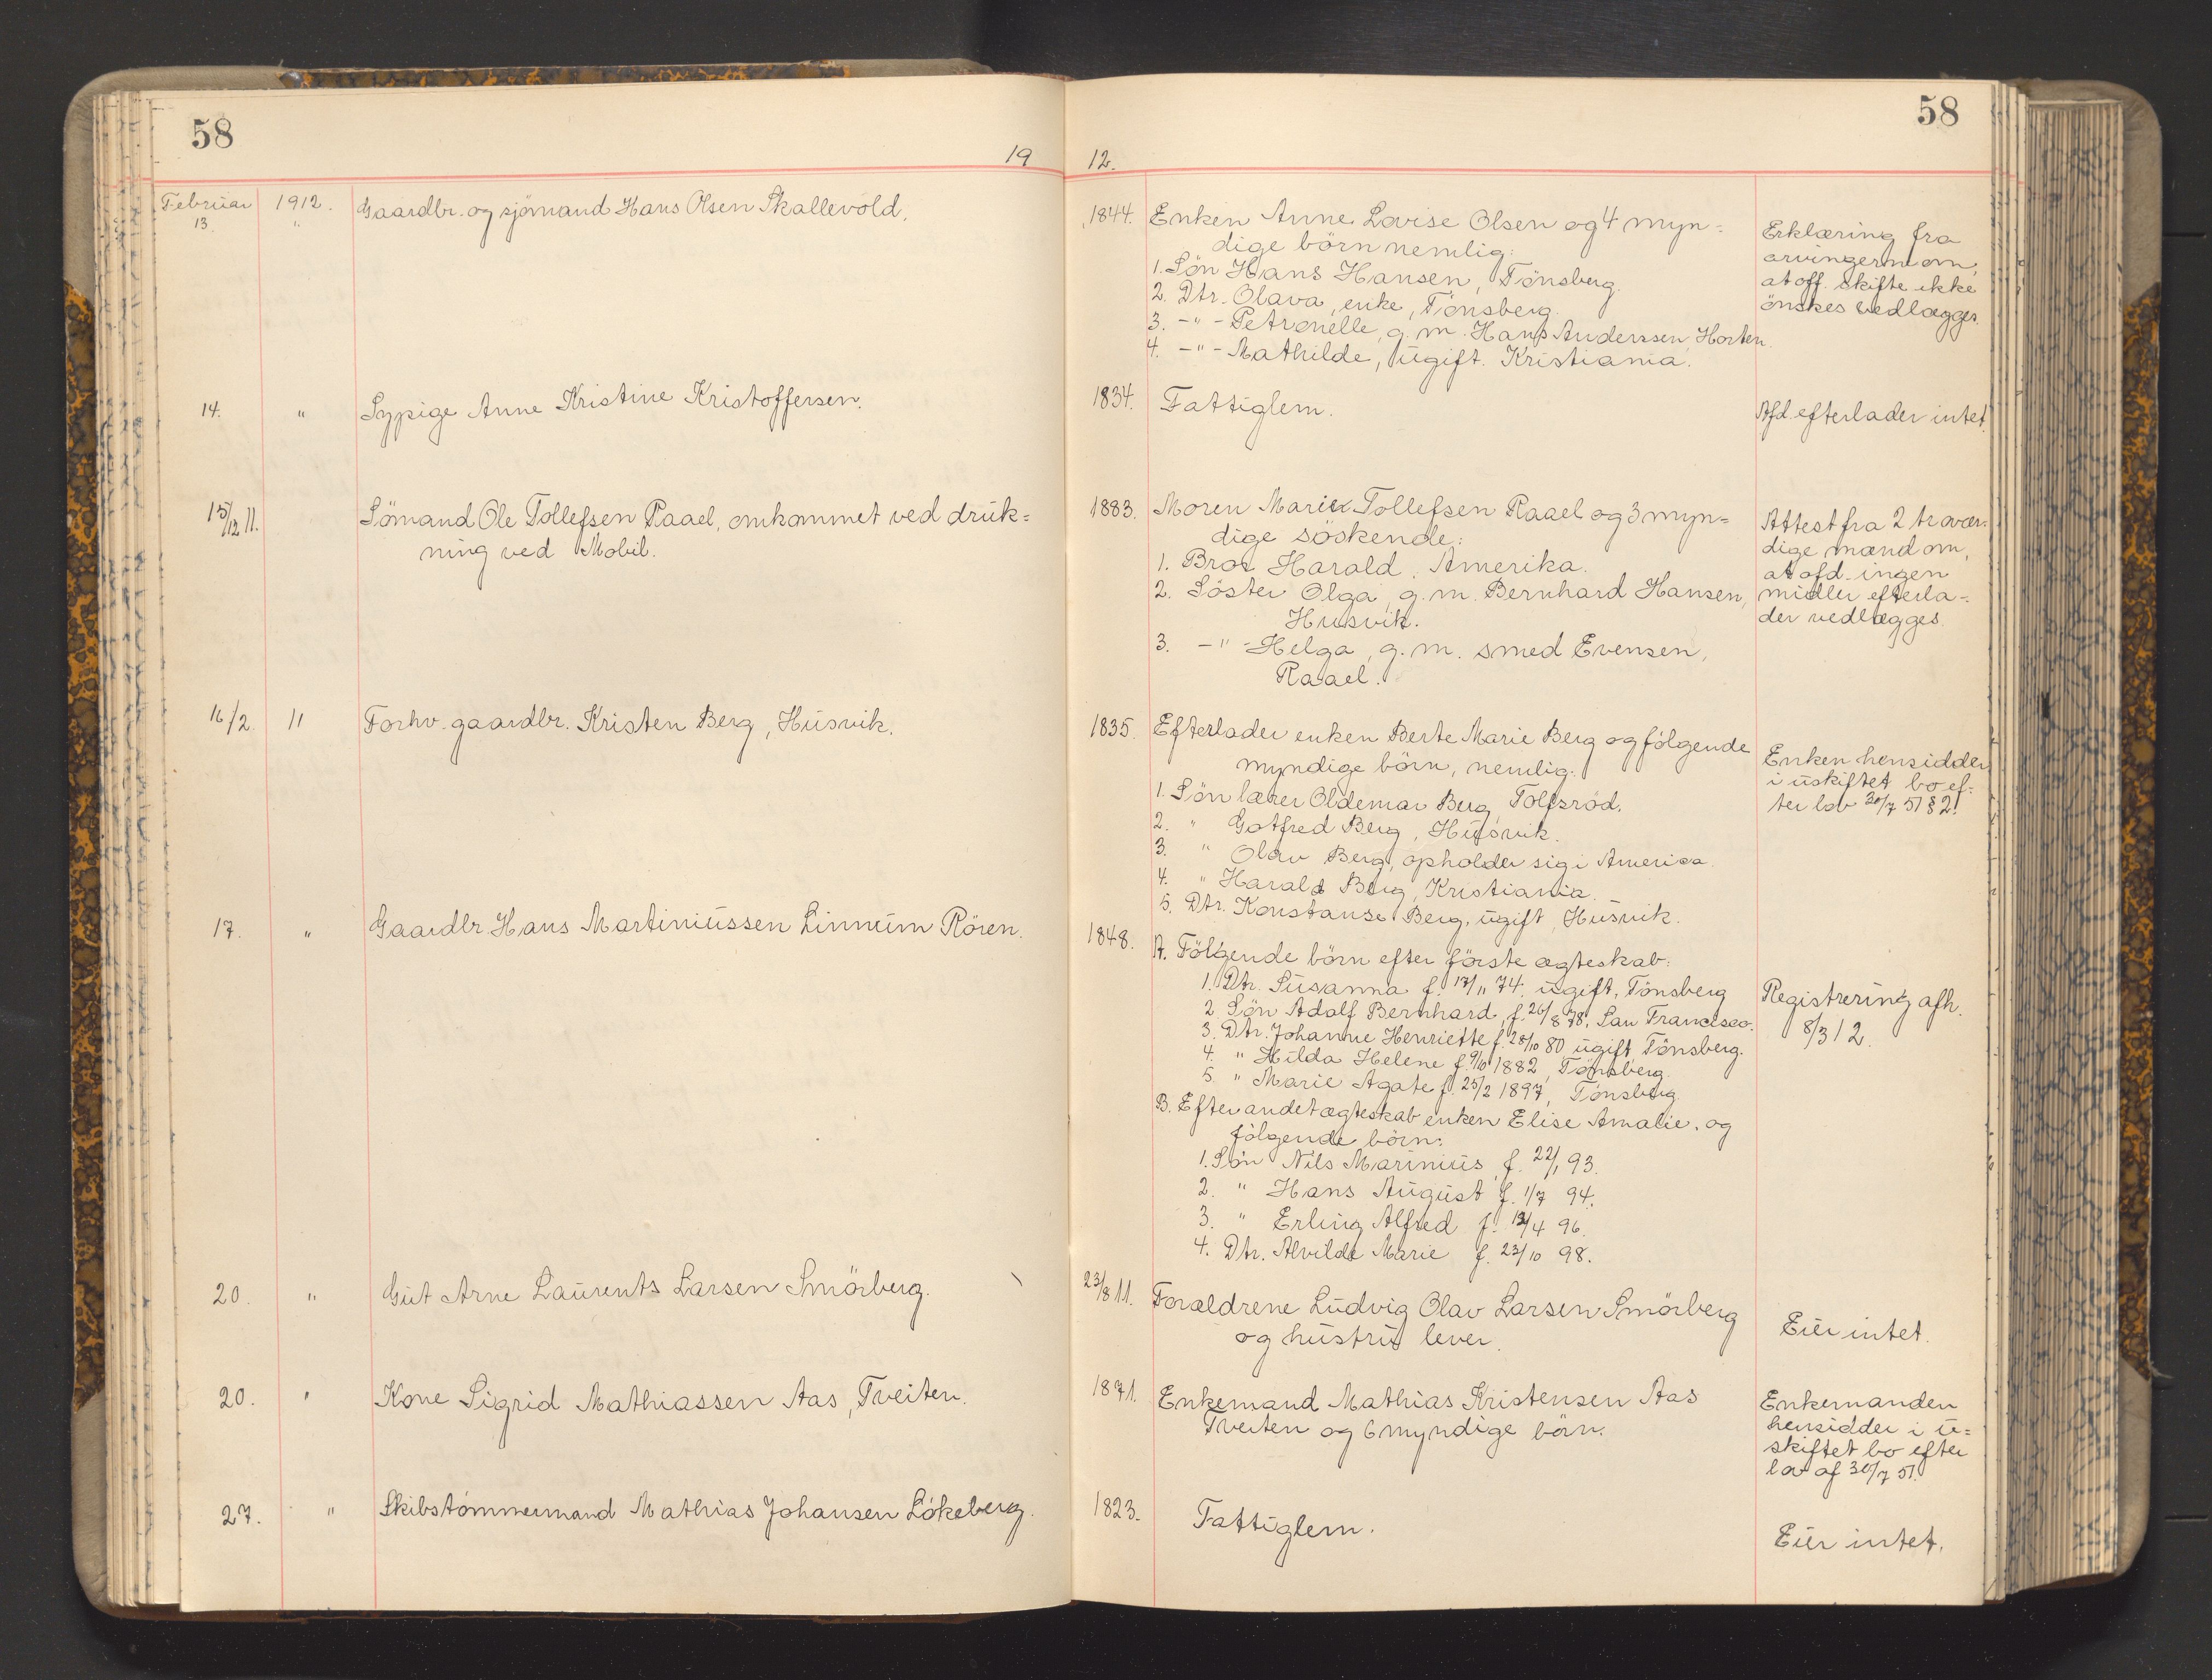 58
58
19 12.
Februar 1912. Gaardbr. og sjömand Hans Olsen Skallevold.
13. "
1844. Enken Anne Lovise Olsen og 4 myn=
dige börn nemlig:
1. Sön Hans Hansen, Tönsberg.
2. Dtr. Olava, enke, Tönsberg.
3. -"- Petronelle, g. m. Hans Anderssen, Horten.
4. -"- Mathilde, ugift. Kristiania.
Erklæring fra
arvingerne om,
at off. skifte ikke
önskes vedlægges.
14. " Sypige Anne Kristine Kristoffersen.
1834. Fattiglem.
Afd. efterlader intet.
15/12 11. Sömand Ole Tollefsen Raael, omkommet ved druk=
ning ved Mobil.
1883. Moren Marie Tollefsen Raael og 3 myn=
dige söskende:
1. Bror Harald. Amerika.
2. Söster Olga, g. m. Bernhard Hansen,
Husvik.
3. -"- Helga, g. m. smed Evensen,
Raael.
Attest fra 2 trovær-
dige mænd om,
at afd. ingen
midler efterla-
der vedlægges.
16/2. 11 Forhv. gaardbr. Kristen Berg, Husvik.
1835. Efterlader enken Berte Marie Berg og fölgende
myndige börn, nemlig:
1. Sön lærer Oldemar Berg, Tolfsröd.
2. " Gotfred Berg, Husvik.
3. " Olav Berg, opholder sig i America.
4. " Harald Berg, Kristiania.
5. Dtr. Konstanse Berg, ugift, Husvik.
Enken hensidder
i uskiftet bo ef-
ter lov 30/7 51 § 2.
17. " Gaardbr. Hans Martiniussen Linnum Rören.
1848. A. Fölgende börn efter förste ægteskab:
1. Dtr. Susanna f. 17/11 74. ugift, Tönsberg
2. Sön Adolf Bernhard, f. 26/8 78, San Francisco.
3. Dtr. Johanne Henriette f. 28/10 80 ugift, Tönsberg.
4. " Hilda Helene f. 9/10 1882, Tönsberg
5. " Marie Agate f. 25/2 1897, Tönsberg
B. Efter andet ægteskab enken Elise Amalie, og
fölgende börn:
1. Sön Nils Marinius, f. 22/1 93.
2. " Hans August f. 1/7 94.
3. " Erling Alfred f. /4 96.
4. Dtr. Alvilde Marie f. 23/10 98.
Registrering afh.
8/3 12.
20. " Gut Arne Laurents Larsen Smörberg.
23/8 11. Forældrene Ludvig Olav Larsen Smörberg
og hustru lever.
Eier intet.
20. " Kone Sigrid Mathiassen Aas, Tveiten.
1871. Enkemand Mathias Kristensen Aas
Tveiten og 6 myndige börn.
Enkemanden
hensidder i u=
skiftet bo efter
lov af 30/7 51.
27. " Skibstömmermand Mathias Johansen Lökeberg.
1823. Fattiglem.
Eier intet.